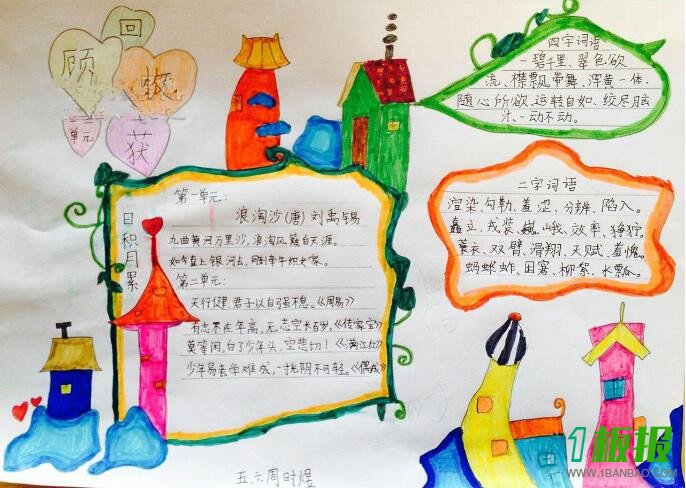 回
顾
收
获
一二
单元
四字词语
一碧千里、翠色欲
流、襟飘带舞、浑黄一体、
随心所欲、运转自如、绞尽脑
汁、一动不动。
二字词语
渲染、勾勒、羞涩、分辨、陷入。
矗立、戎装、巍峨、效率、狰狞。
蓑衣、双臂、滑翔、天赋、羞愧。
蚂蚱、田窝、柳絮、水瓢。
日积月累
第一单元:
浪淘沙(唐)刘禹锡
九曲黄河万里沙,浪淘风簸自天涯。
如今直上银河去,同到牵牛织女家。
第二单元:
天行健,君子以自强不息。《周易》
有志不在年高,无志空长百岁。《传家宝》
莫等闲,白了少年头,空悲切!《满江红》
少年易老学难成,一寸光阴不可轻。《偶成》
五.六周时煜
1板报
WWW.1BANBAO.COM